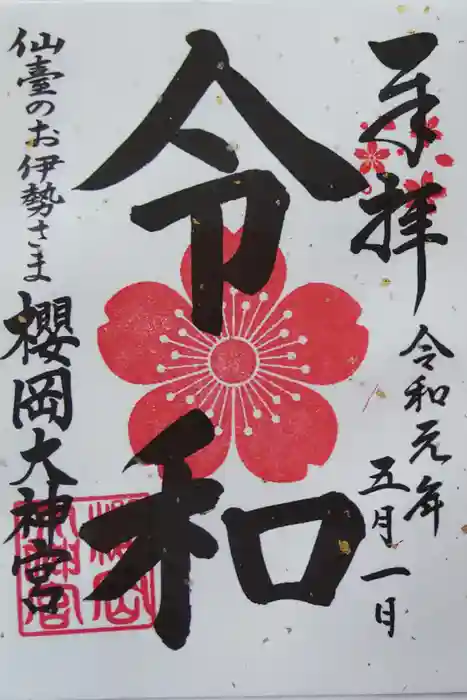 奉拝
令和元年
五月一日
令和
仙臺のお伊勢さま
櫻岡大神宮